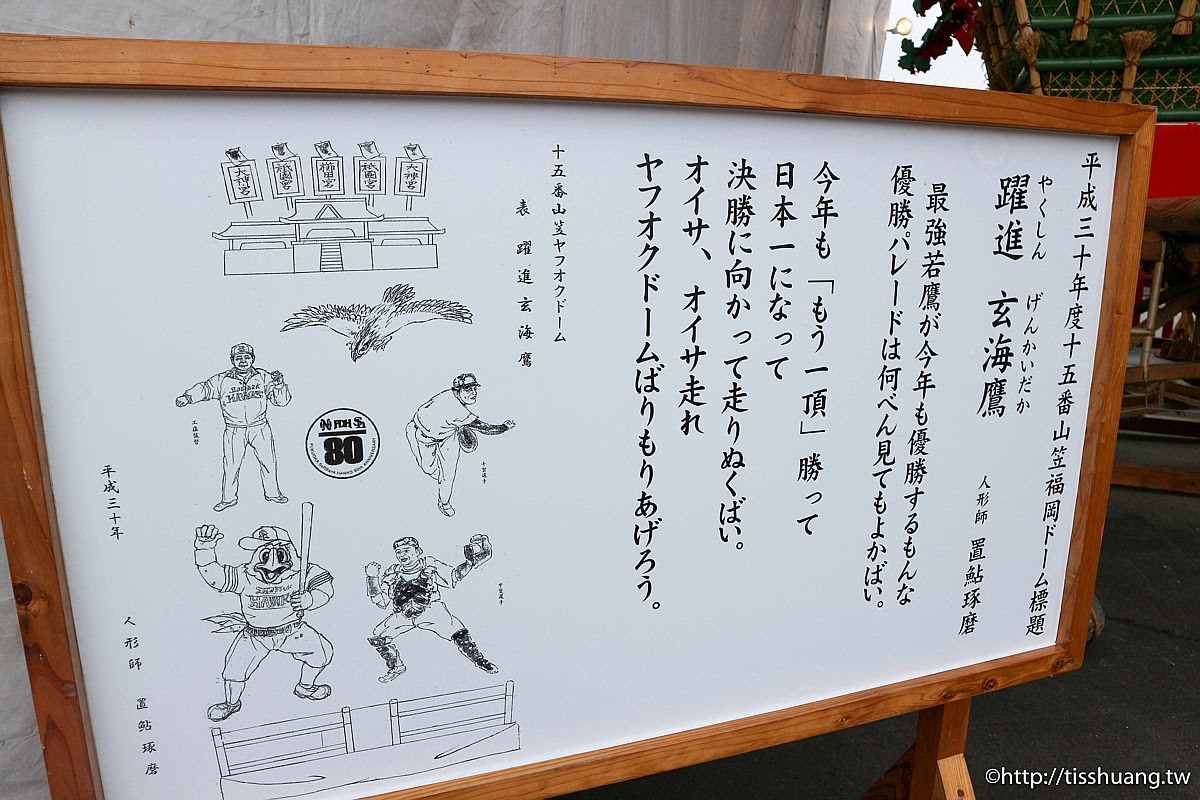 平成三十年度十五番山笠福岡ドーム標題
やくしん げんかいだか
躍進 玄海鷹
人形師 置鮎琢磨
最強若鷹が今年も優勝するもんな
優勝パレードは何べん見てもよかばい。
今年も「もう一頂」勝って
日本一になって
決勝に向かって走りぬくばい。
オイサ、オイサ走れ
ヤフオクドームばりもりあげろう。
十五番山笠ヤフオクドーム
表 躍進玄海鷹
大神宮
祇園宮
櫛田宮
祇園宮
大神宮
工藤監督
HAWKS
80
FUKUOKA SoftBank HAWKS 80th ANNIVERSARY
千賀選手
HAWKS
平成三十年
人形師 置鮎琢磨
©http://tisshuang.tw